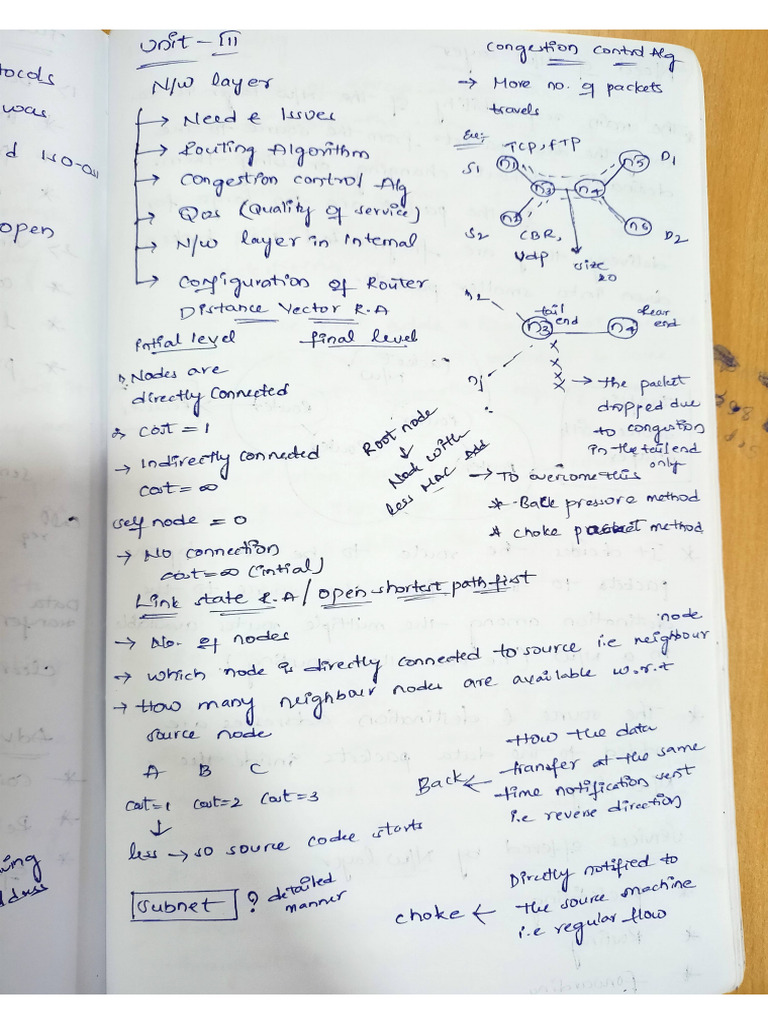 Unit - III
N/W layer
→ Need & Issues
→ Routing Algorithm
→ Congestion control Alg
→ Qos (Quality of service)
→ N/W layer in Internal
→ Configuration of Router
Distance Vector R.A
Intial level    final level
→ Nodes are
directly connected
→ cost = 1
→ Indirectly connected
cost = ∞
self node = 0
→ No connection
cost = ∞ (intial)
Root node
↓
Node with
less MAC Add
Congestion Control Alg
→ More no. of packets
travels
Ex:-
TCP, FTP
S1 n1 n5 D1
n3 n4
S2 n2 n6 D2
CBR,
Udp
size
20
n2
tail
end
rear
end
n3 n4
n1
x
x
x
x → the packet
dropped due
to congestion
in the tail end
only
→ To overcome this
* Back pressure method
* choke packet method
Link state R.A / open shortest path first
→ No. of nodes
→ which node is directly connected to source i.e neighbour node
→ How many neighbour nodes are available w.r.t
source node
A B C
cost=1 cost=2 cost=3
↓
less → so source code starts
subnet ? detailed
manner
Back ←
How the data
transfer at the same
time notification sent
i.e reverse direction
choke ←
Directly notified to
the source machine
i.e regular flow
tocols
was
d ISO-OSI
open